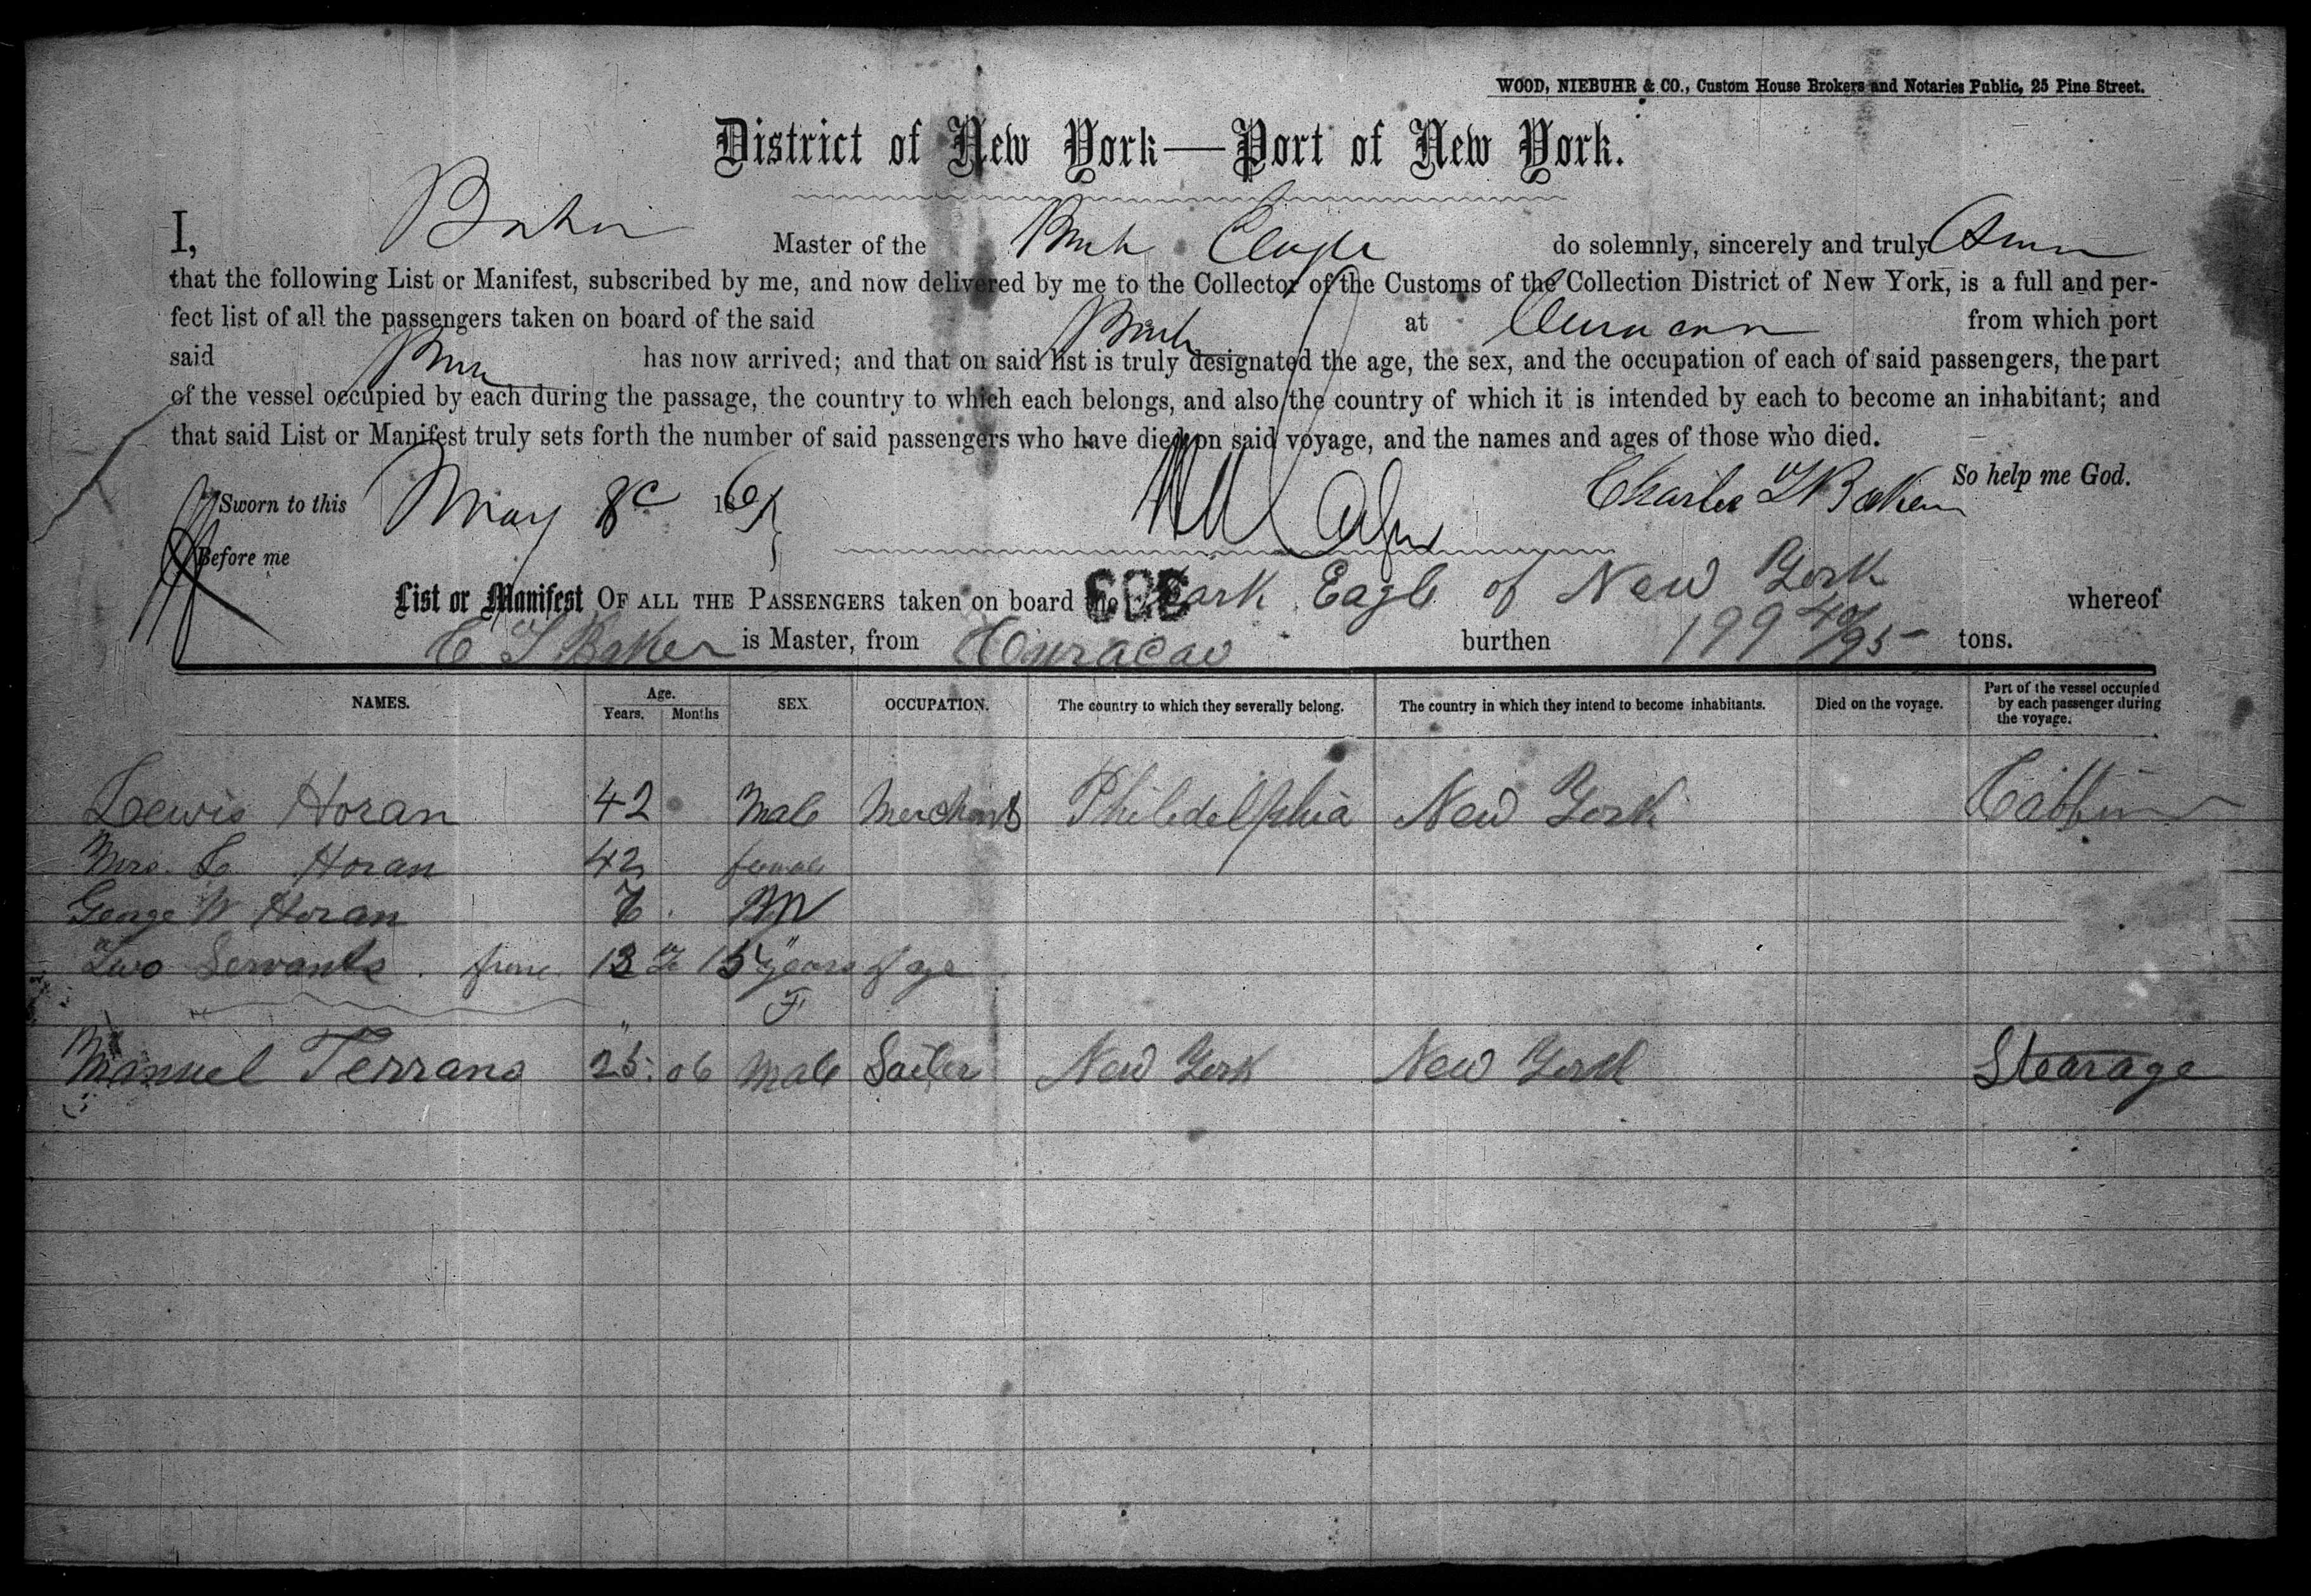 WOOD, NIEBUHR & CO., Custom House Brokers and Notaries Public, 25 Pine Street.
District of New York—Port of New York.
I, Baker Master of the Bark Eagle do solemnly, sincerely and truly
that the following List or Manifest, subscribed by me, and now delivered by me to the Collector of the Customs of the Collection District of New York, is a full and per-
fect list of all the passengers taken on board of the said Bark at Curacao from which port
said Bark has now arrived; and that on said list is truly designated the age, the sex, and the occupation of each of said passengers, the part
of the vessel occupied by each during the passage, the country to which each belongs, and also the country of which it is intended by each to become an inhabitant; and
that said List or Manifest truly sets forth the number of said passengers who have died on said voyage, and the names and ages of those who died.
So help me God.
Sworn to this May 8 186 Charles T Baker
Before me
List or Manifest OF ALL THE PASSENGERS taken on board the Bark Eagle of New York whereof
C T Baker is Master, from Curacao burthen 199 40/95 tons.
NAMES. Age. Years. Months SEX. OCCUPATION. The country to which they severally belong. The country in which they intend to become inhabitants. Died on the voyage. Part of the vessel occupied by each passenger during the voyage.
Lewis Horan 42 Male Merchant Philedelphia New York Cabbin
Mrs. L Horan 42 female
George W Horan M
Two Servants. from 13 to 15 years of age
F
Manuel Terrano 25 06 Male Sailer New York New York Stearage